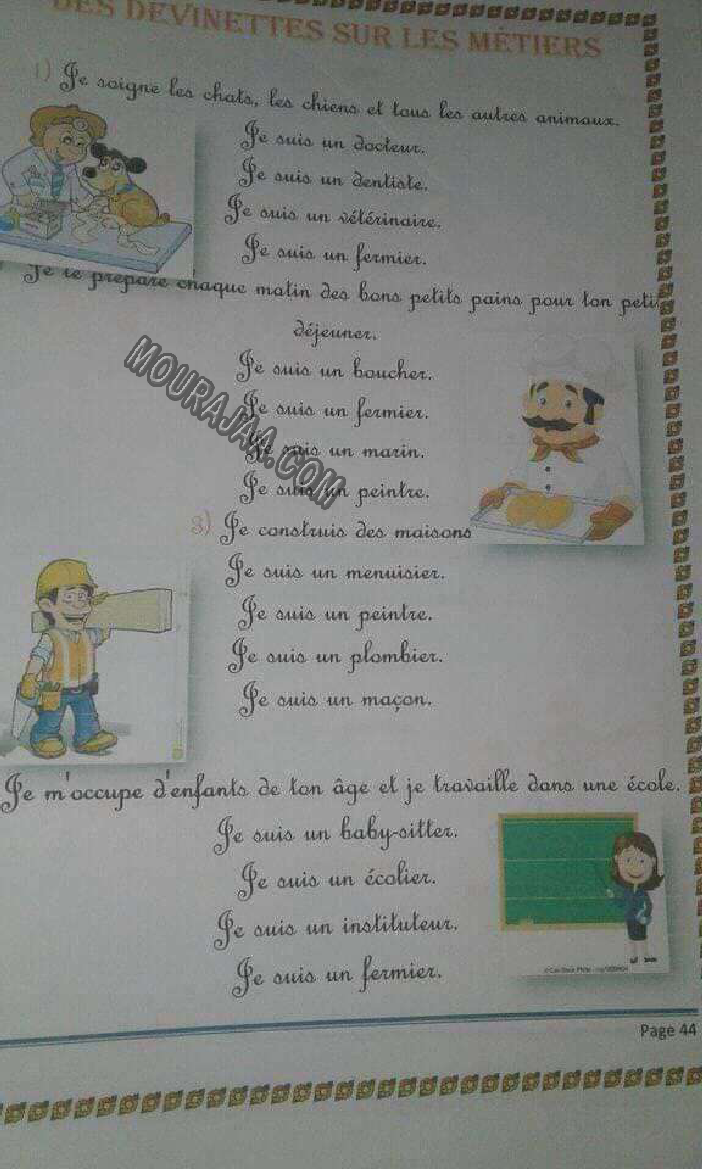 DES DEVINETTES SUR LES MÉTIERS
1) Je soigne les chats, les chiens et tous les autres animaux.
Je suis un docteur.
Je suis un dentiste.
Je suis un vétérinaire.
Je suis un fermier.
Je te prépare chaque matin des bons petits pains pour ton petit
déjeuner.
Je suis un boucher.
Je suis un fermier.
Je suis un marin.
Je suis un peintre.
MOURAJAA.COM
3) Je construis des maisons
Je suis un menuisier.
Je suis un peintre.
Je suis un plombier.
Je suis un maçon.
Je m'occupe d'enfants de ton âge et je travaille dans une école.
Je suis un baby-sitter.
Je suis un écolier.
Je suis un instituteur.
Je suis un fermier.
Page 44